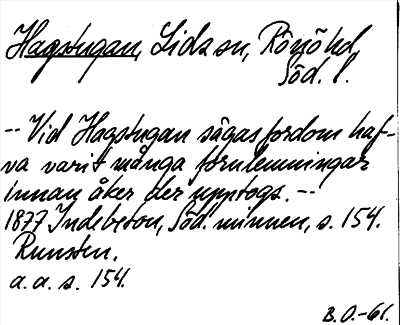 Hagstugan, Lida sn, Rönö hd,
Söd. l.
-- Vid Hagstugan sägas fordom haf-
va varit många fornlemningar
innan åker der upptogs. --
1877 Indebetou, Söd. minnen, s. 154.
Runsten.
a. a. s. 154.
B.O.-61.